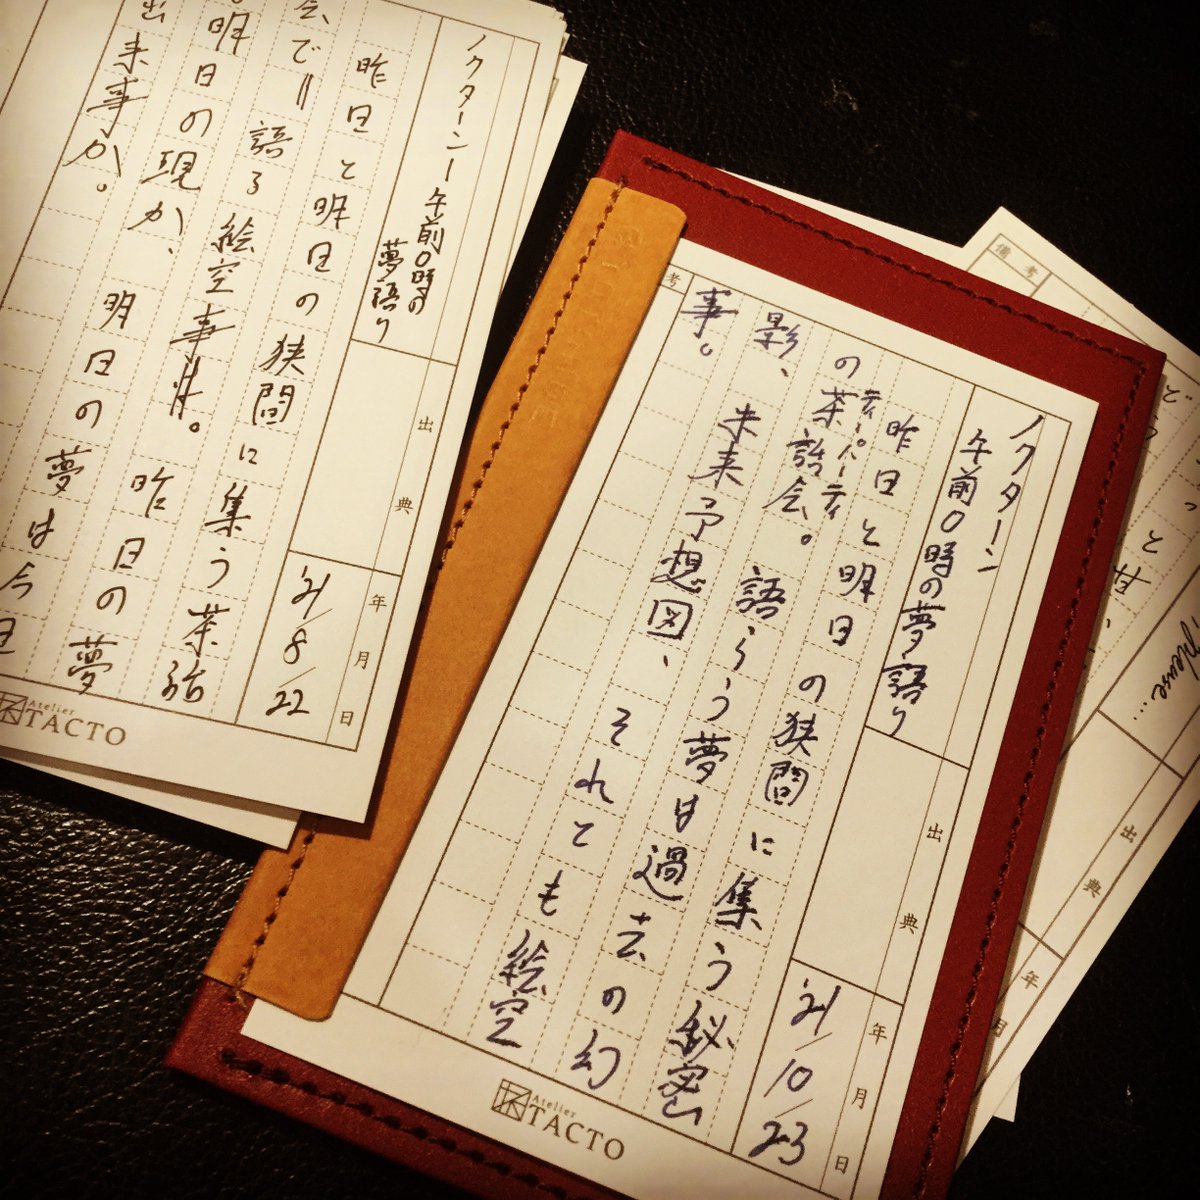 ノクターン—午前0時の
夢語り
出典
'21/8/22
年月日
昨日と明日の狭間に集う茶話
会で 語る絵空事 。昨日の夢
明日の現か、明日の夢は今日
出来事か。
Atelier
TACTO
ノクターン
午前0時の夢語り
出典
'21/10/23
年月日
昨日と明日の狭間に集う秘密
ティーパーティ
の茶話会。語らう夢は過去の幻
影、未来予想図、それとも絵空
事。
考
Atelier
TACTO
備考
please...
出典
年月